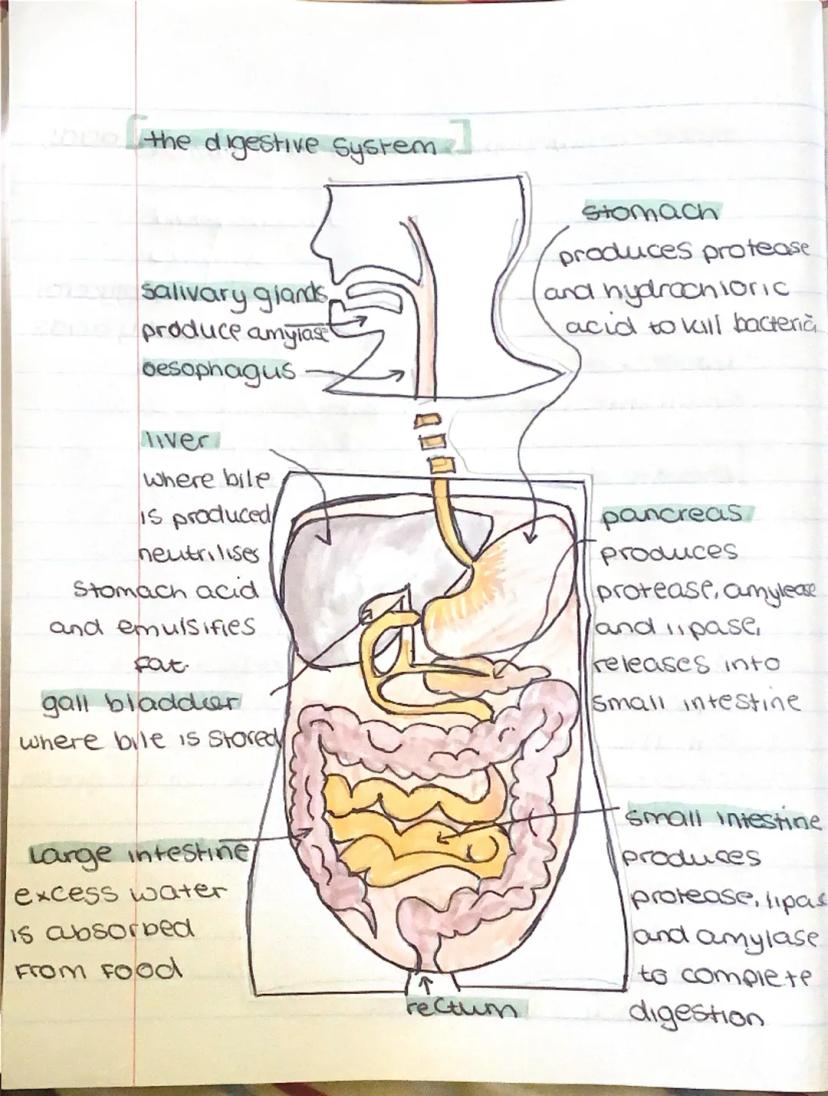 [the digestive system]
salivary glands
produce amylase
oesophagus
stomach
produces protease
and hydrochloric
acid to kill bacteria
liver
where bile
is produced
neutrilises
stomach acid
and emulsifies
fat.
gall bladder
where bile is stored
pancreas
produces
protease, amylease
and lipase,
releases into
small intestine
large intestine
excess water
is absorbed
from food
small intestine
produces
protease, lipas
and amylase
to complete
digestion
rectum